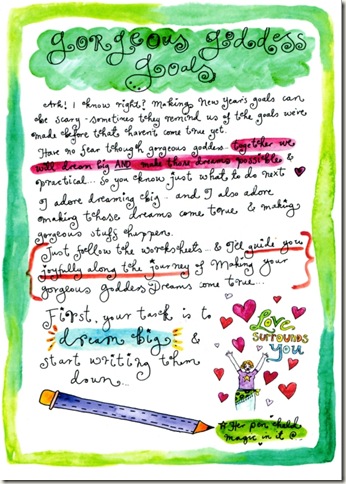 gorgeous goddess
Goals
Ark! I know right? Making New Year's goals can
be scary - sometimes they remind us of the goals we've
made before that haven't come true yet.
Have no fear though gorgeous goddess... together we
will dream big AND make those dreams possible &
practical... so you know just what to do next
I adore dreaming big - and I also adore
making those dreams come true & making
gorgeous stuff happen.
Just follow the worksheets... & I'll guide you
joyfully along the journey of Making your
gorgeous Goddess Dreams come true...
First, your task is to
dream big &
start writing them
down...
Love
surrounds
You
Her pen held
magic in it